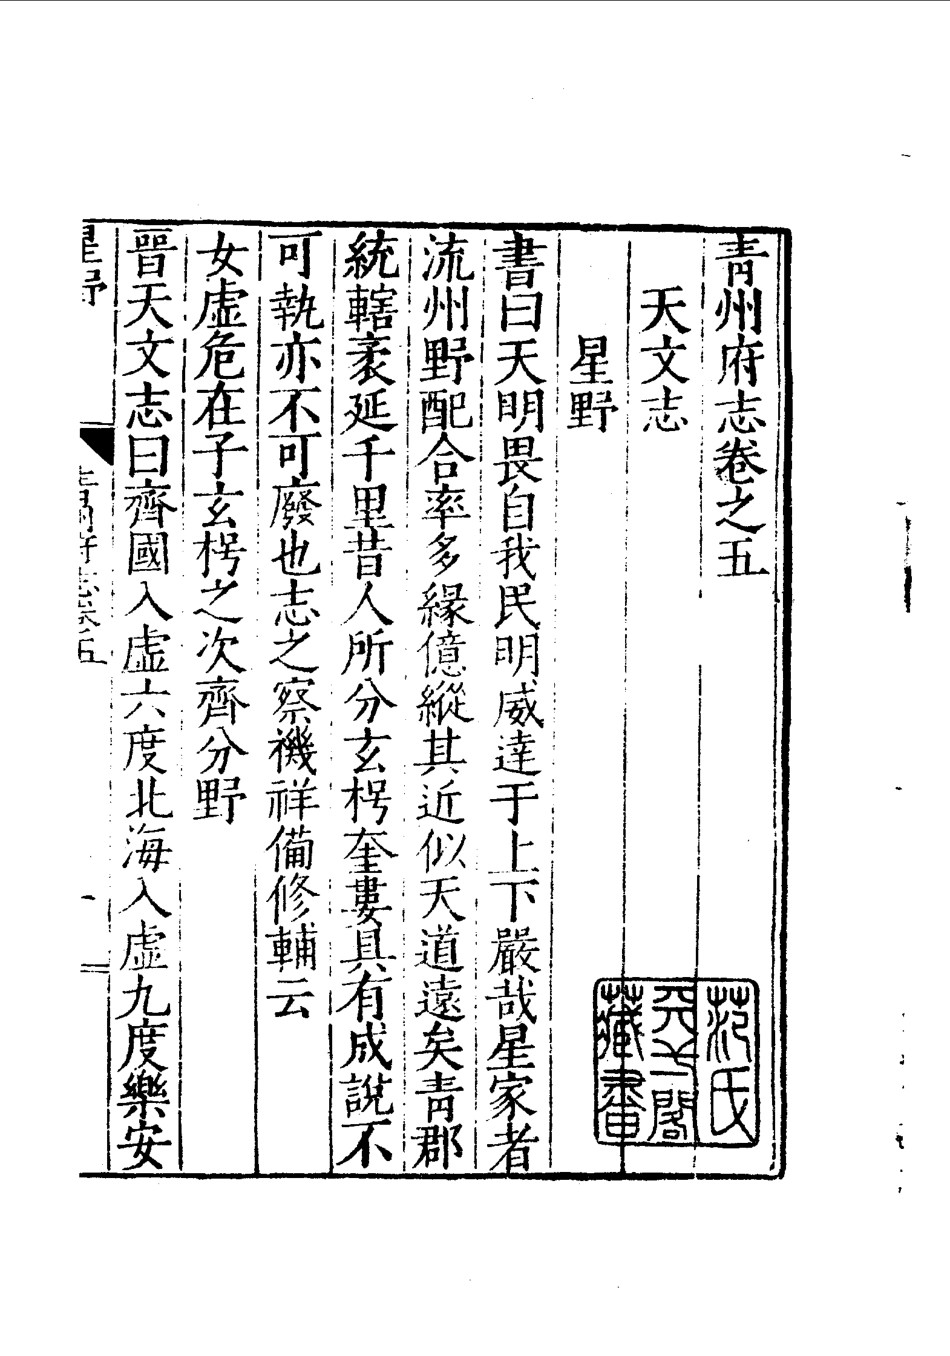 青州府志卷之五
天文志
星野
書曰天明畏自我民明威達于上下嚴哉星家者
流州野配合率多緣億縱其近似天道遠矣青郡
統轄袤延千里昔人所分玄枵奎婁具有成說不
可執亦不可廢也志之察禨祥備修輔云
女虛危在子玄枵之次齊分野
晉天文志曰齊國入虛六度北海入虛九度樂安
星野
青州府志卷五
一
范氏
天一閣
藏書